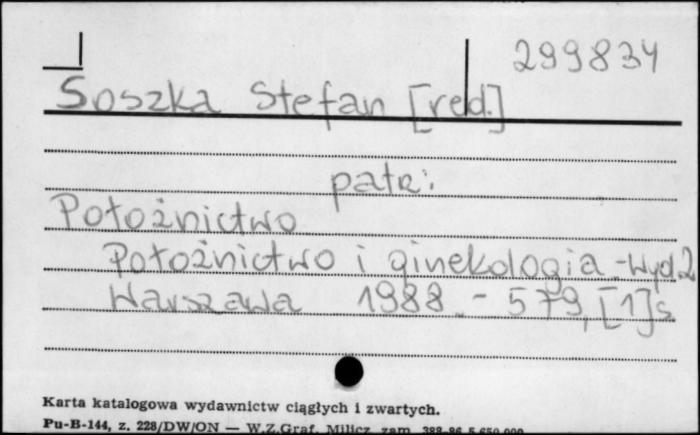 299834
Soszka Stefan [red.]
patrz:
Położnictwo
Położnictwo i ginekologia.-Wyd.2
Warszawa 1988.- 579,[1]s
Karta katalogowa wydawnictw ciągłych i zwartych.
Pu-B-144, z. 228/DW/ON — W.Z.Graf. Milicz zam. 388-86 5.650.000